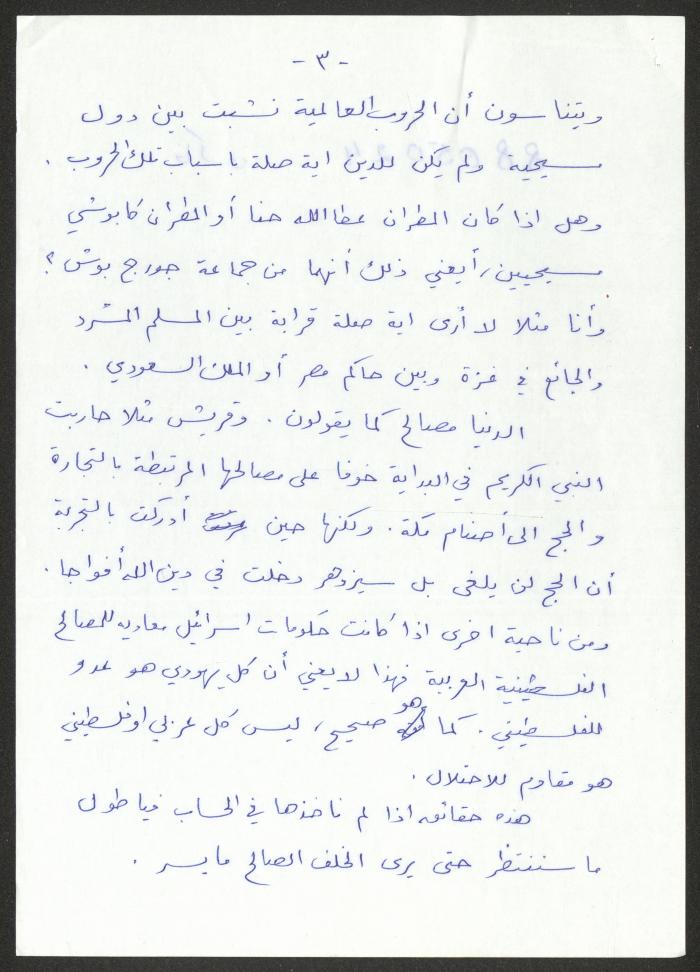 - ٣ -
ويتناسون أن الحروب العالمية نشبت بين دول
مسيحيه ولم يكن للدين اية صلة باسباب تلك الحروب .
وهل اذا كان المطران عطا الله حنا أو المطران كابوشي
مسيحيين ، أيعني ذلك أنهما من جماعة جورج بوش ؟
وأنا مثلا لا أرى اية صلة قرابة بين المسلم المشرد
والجائع في غزة وبين حاكم مصر أو الملك السعودي .
الدنيا مصالح كما يقولون . وقريش مثلا حاربت
النبي الكريم في البداية خوفا على مصالحها المرتبطة بالتجارة
والحج الى أصنام مكة . ولكنها حين أدركت بالتجربة
أن الحج لن يلغى بل سيزدهر دخلت في دين الله أفواجا .
ومن ناحية اخرى اذا كانت حكومات اسرائيل معاديه للمصالح
الفلسطينية العربية فهذا لا يعني أن كل يهودي هو عدو
للفلسطيني . كما هو صحيح ، ليس كل عربي او فلسطيني
هو مقاوم للاحتلال .
هذه حقائق اذا لم ناخذها في الحساب فيا طول
ما سننتظر حتى يرى الخلف الصالح ما يسر .